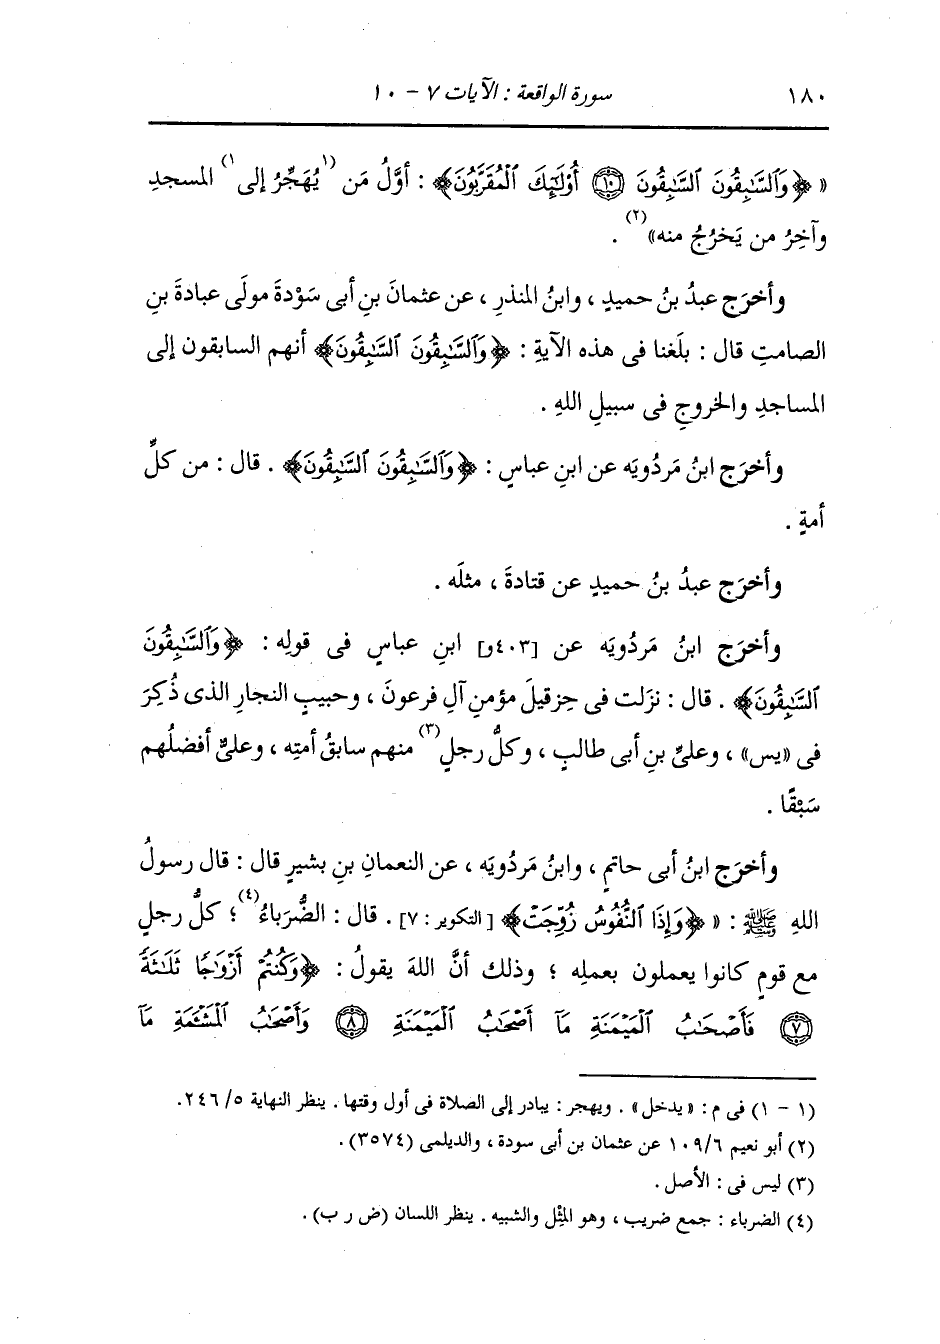 ١٨٠ سورة الواقعة : الآيات ٧ - ١٠
« ﴿وَٱلسَّٰبِقُونَ ٱلسَّٰبِقُونَ ١٠ أُوْلَٰٓئِكَ ٱلْمُقَرَّبُونَ﴾ : أوَّلُ مَن (١يُهَجِّرُ إلى١) المسجدِ
وآخِرُ من يَخرُجُ منه»(٢) .
وأخرَج عبدُ بنُ حميدٍ ، وابنُ المنذرِ ، عن عثمانَ بنِ أبى سَوْدةَ مولَى عبادةَ بنِ
الصامتِ قال : بلَغنا فى هذه الآيةِ : ﴿وَٱلسَّٰبِقُونَ ٱلسَّٰبِقُونَ﴾ أنهم السابقون إلى
المساجدِ والخروجِ فى سبيلِ اللهِ .
وأخرَج ابنُ مَردُويَه عن ابنِ عباسٍ : ﴿وَٱلسَّٰبِقُونَ ٱلسَّٰبِقُونَ﴾ . قال : من كلِّ
أمةٍ .
وأخرَج عبدُ بنُ حميدٍ عن قتادةَ ، مثلَه .
وأخرَج ابنُ مَردُويَه عن [٤٠٣و] ابنِ عباسٍ فى قولِه : ﴿وَٱلسَّٰبِقُونَ
ٱلسَّٰبِقُونَ﴾ . قال : نزَلت فى حِزقيلَ مؤمنِ آلِ فرعونَ ، وحبيبٍ النجارِ الذى ذُكِرَ
فى «يس» ، وعلىِّ بنِ أبى طالبٍ ، وكلُّ رجلٍ(٣) منهم سابقُ أمتِه ، وعلىٌّ أفضلُهم
سَبْقًا .
وأخرَج ابنُ أبى حاتمٍ ، وابنُ مَردُويَه ، عن النعمانِ بنِ بشيرٍ قال : قال رسولُ
اللهِ ﷺ : « ﴿وَإِذَا ٱلنُّفُوسُ زُوِّجَتْ﴾ [التكوير : ٧] . قال : الضُّرَباءُ(٤) ؛ كلُّ رجلٍ
مع قومٍ كانوا يعملون بعملِه ؛ وذلك أنَّ اللهَ يقولُ : ﴿وَكُنتُمْ أَزْوَٰجًا ثَلَٰثَةً
٧ فَأَصْحَٰبُ ٱلْمَيْمَنَةِ مَآ أَصْحَٰبُ ٱلْمَيْمَنَةِ ٨ وَأَصْحَٰبُ ٱلْمَشْـَٔمَةِ مَآ
(١ - ١) فى م : «يدخل» . ويهجر : يبادر إلى الصلاة فى أول وقتها . ينظر النهاية ٥/ ٢٤٦.
(٢) أبو نعيم ١٠٩/٦ عن عثمان بن أبى سودة ، والديلمى (٣٥٧٤).
(٣) ليس فى : الأصل .
(٤) الضرباء : جمع ضريب ، وهو المِثْل والشبيه . ينظر اللسان (ض ر ب) .